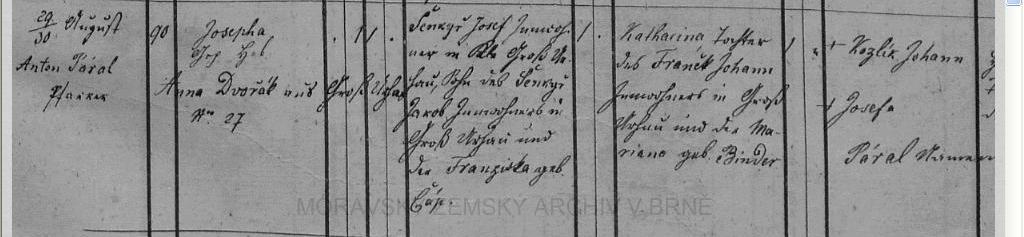 29/30 August
Anton Páral
Pfarrer
90
Josepha
Gep. Heb.
Anna Dvořák aus Groß Urhau
Nro 27
Šenkyř Josef Inwoh-
ner in Groß Ur-
hau, Sohn des Šenkyř
Jakob Inwohners in
Groß Urhau und
der Franziska geb.
Čáp.
Katharina Tochter
des Franěk Johann
Inwohners in Groß
Urhau und der Ma-
riana geb. Binder
+ Kozlík Johann
+ Josefa
Páral Namen
MORAVSKÝ ZEMSKÝ ARCHIV V BRNĚ